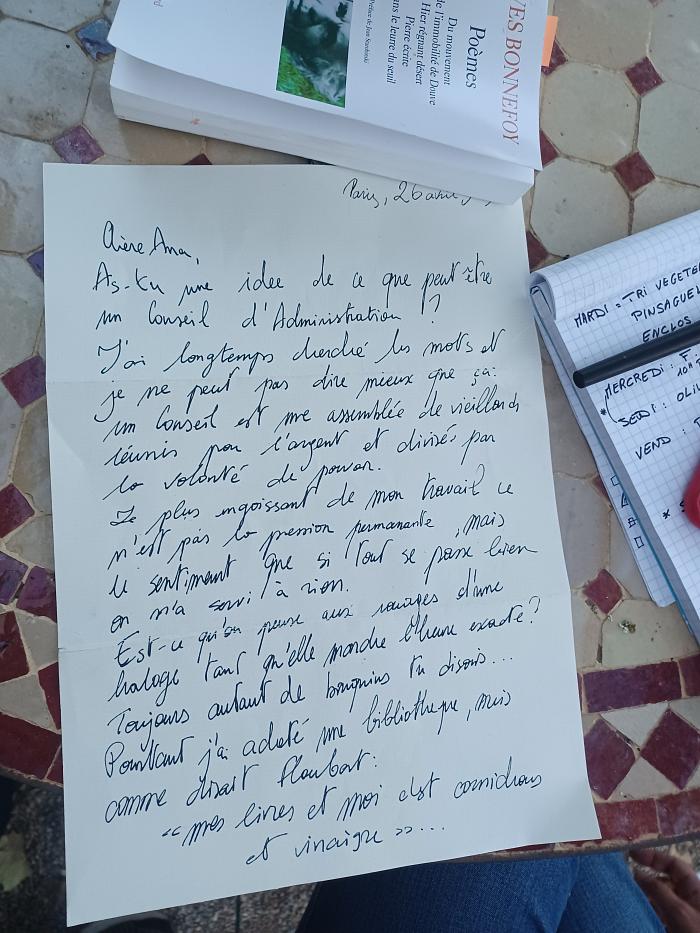 YVES BONNEFOY
Poèmes
Du mouvement
et de l'immobilité de Douve
Hier régnant désert
Pierre écrite
Dans le leurre du seuil
Préface de Jean Starobinski
Paris, 26
Chère Ana,
As-tu une idee de ce que peut être
un Conseil d'Administration ?
J'ai longtemps cherché les mots et
je ne peut pas dire mieux que ça:
un Conseil est une assemblée de vieillards
réunis par l'argent et divisés par
la volonté de pouvoir.
Le plus angoissant de mon travail ce
n'est pas la pression permanante, mais
le sentiment que si tout se passe bien
on n'a servi à rien.
Est-ce qu'on pense aux rouages d'une
horloge tant qu'elle montre l'heure exacte?
Toujours autant de bouquins tu disais...
Pourtant j'ai acheté une bibliothèque, mais
comme disait Flaubert:
"mes livres et moi c'est cornichons
et vinaigre >>...
MARDI = TRI VEGETE
PINSAGUEL
ENCLOS
MERCREDI : F
10H
* JEUDI : OLI
VEND :